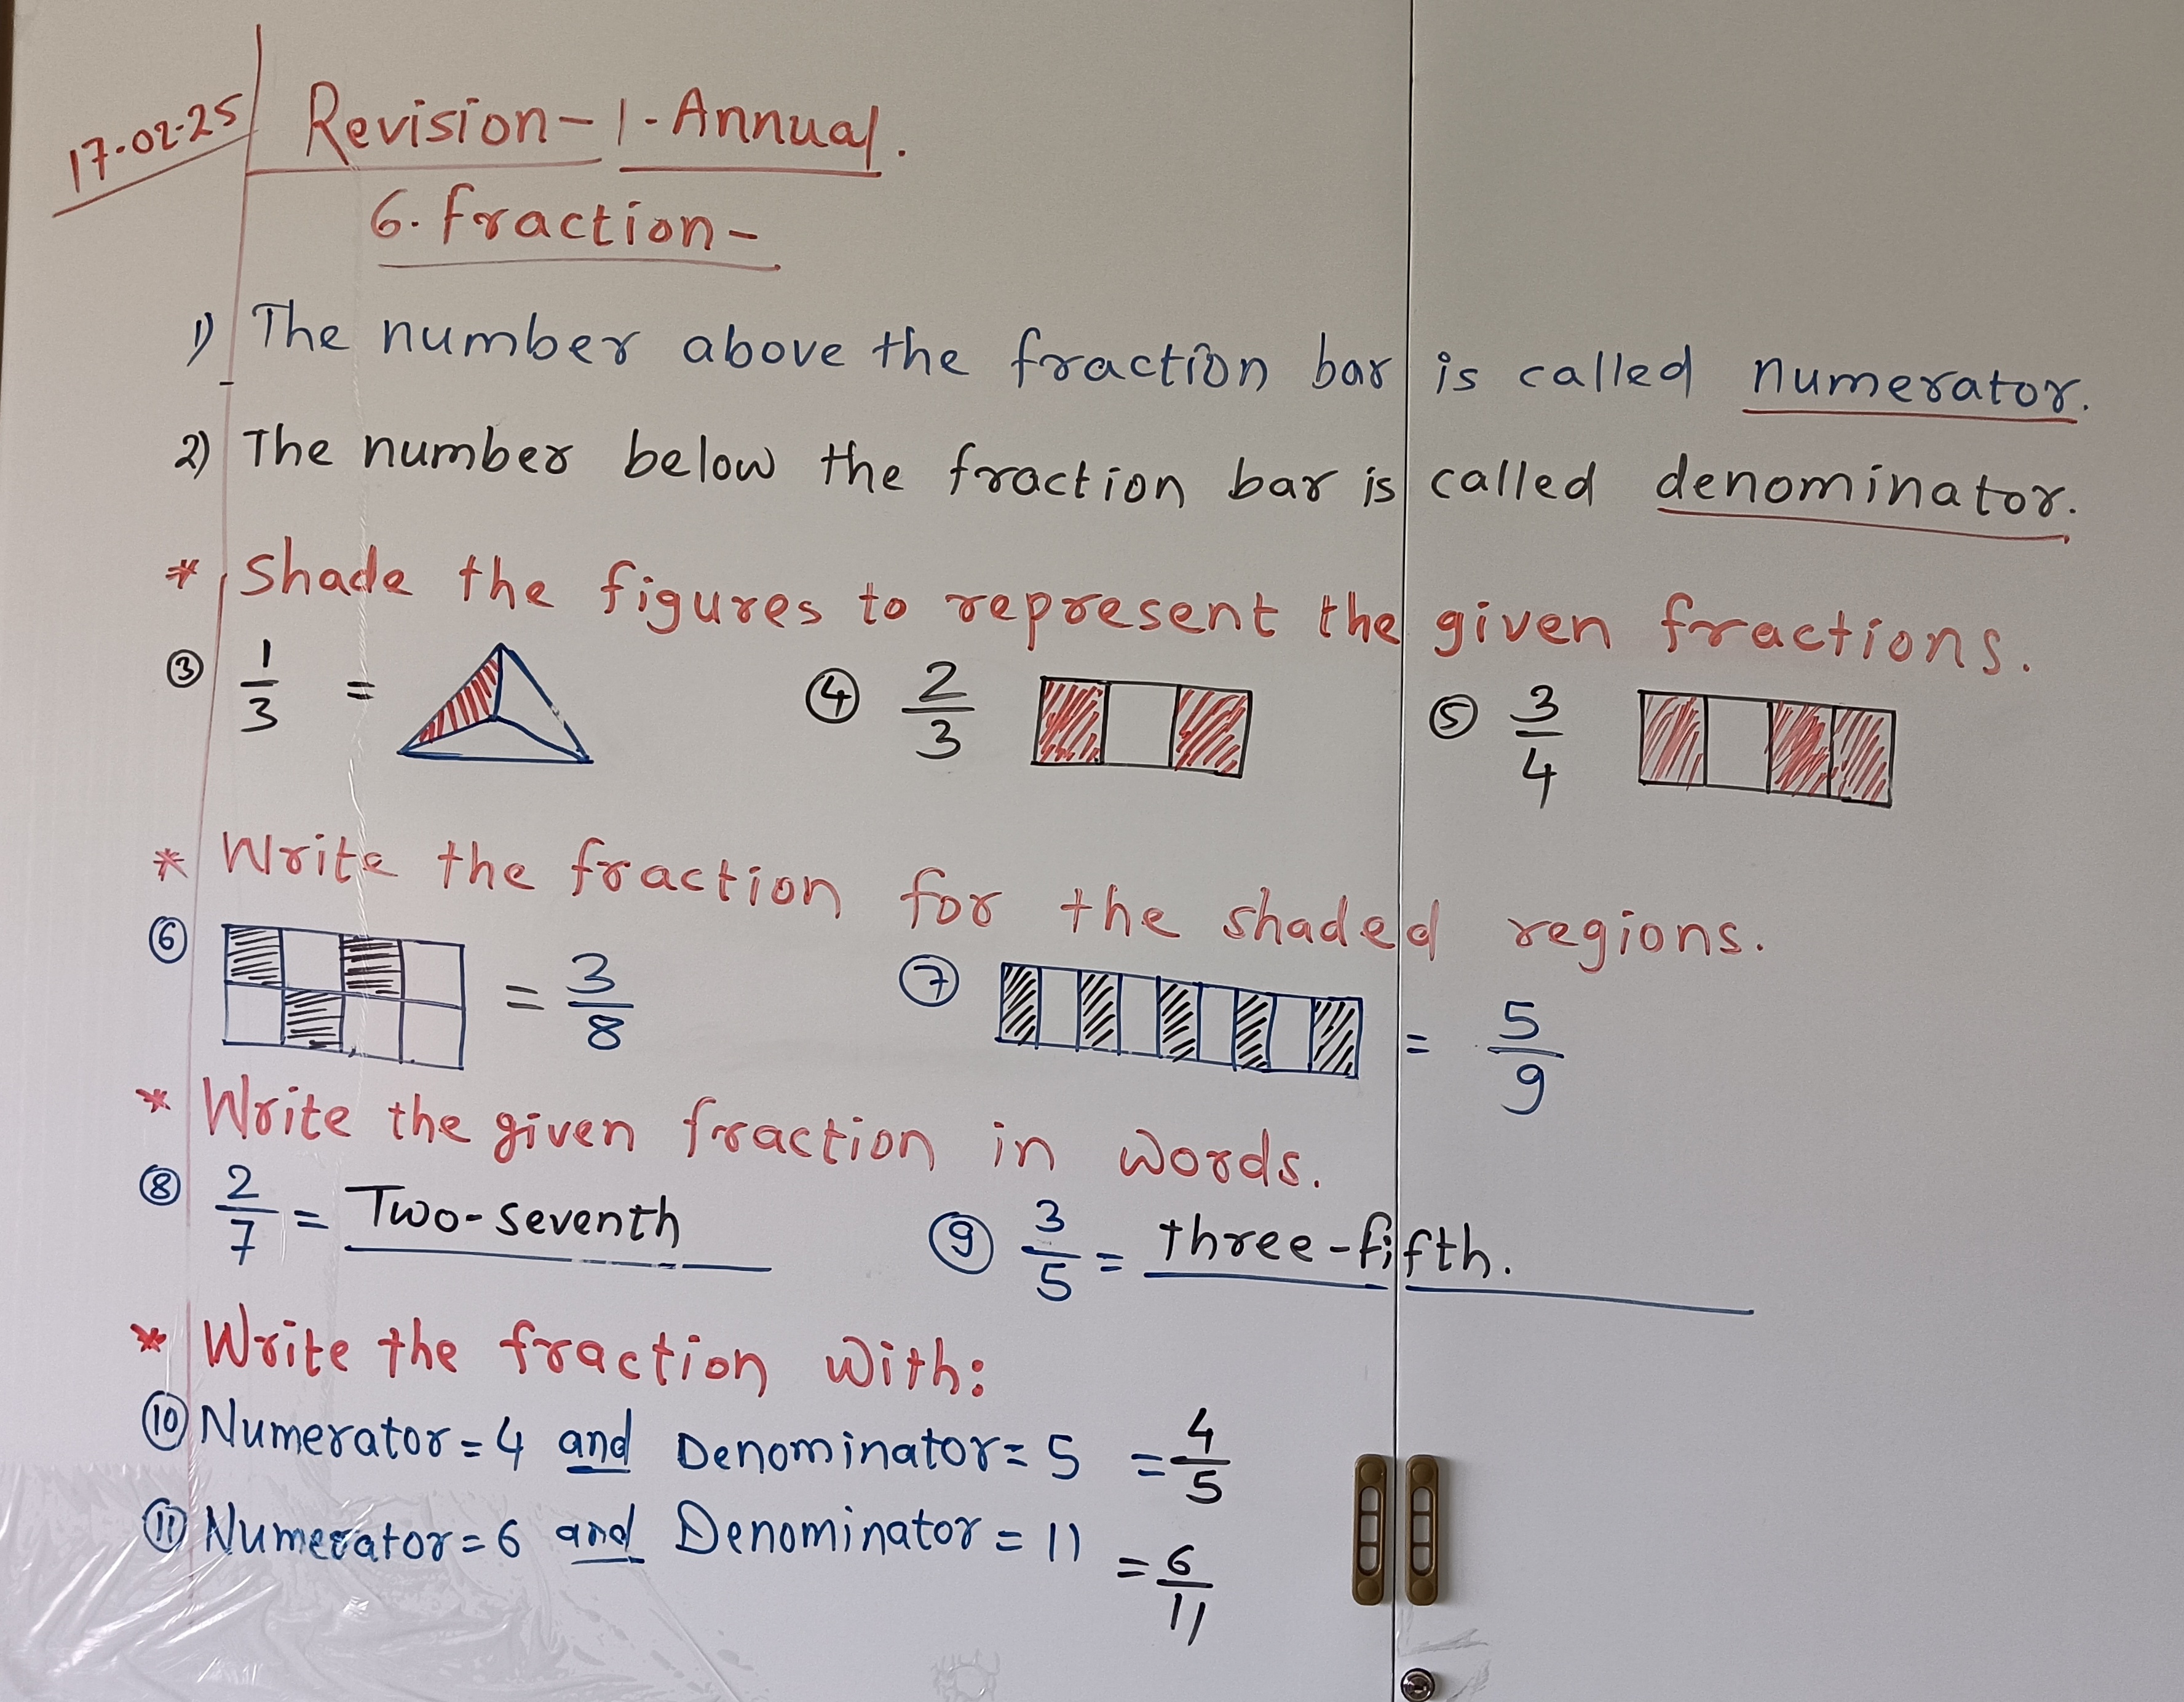 17-02-25
Revision-1-Annual.
6. Fraction-
1) The number above the fraction bar is called numerator.
2) The number below the fraction bar is called denominator.
* Shade the figures to represent the given fractions.
③ 1/3 = ④ 2/3 ⑤ 3/4
* Write the fraction for the shaded regions.
⑥ = 3/8 ⑦ = 5/9
* Write the given fraction in words.
⑧ 2/7 = Two-seventh ⑨ 3/5 = three-fifth.
* Write the fraction with:
⑩ Numerator=4 and Denominator=5 = 4/5
⑪ Numerator=6 and Denominator=11 = 6/11